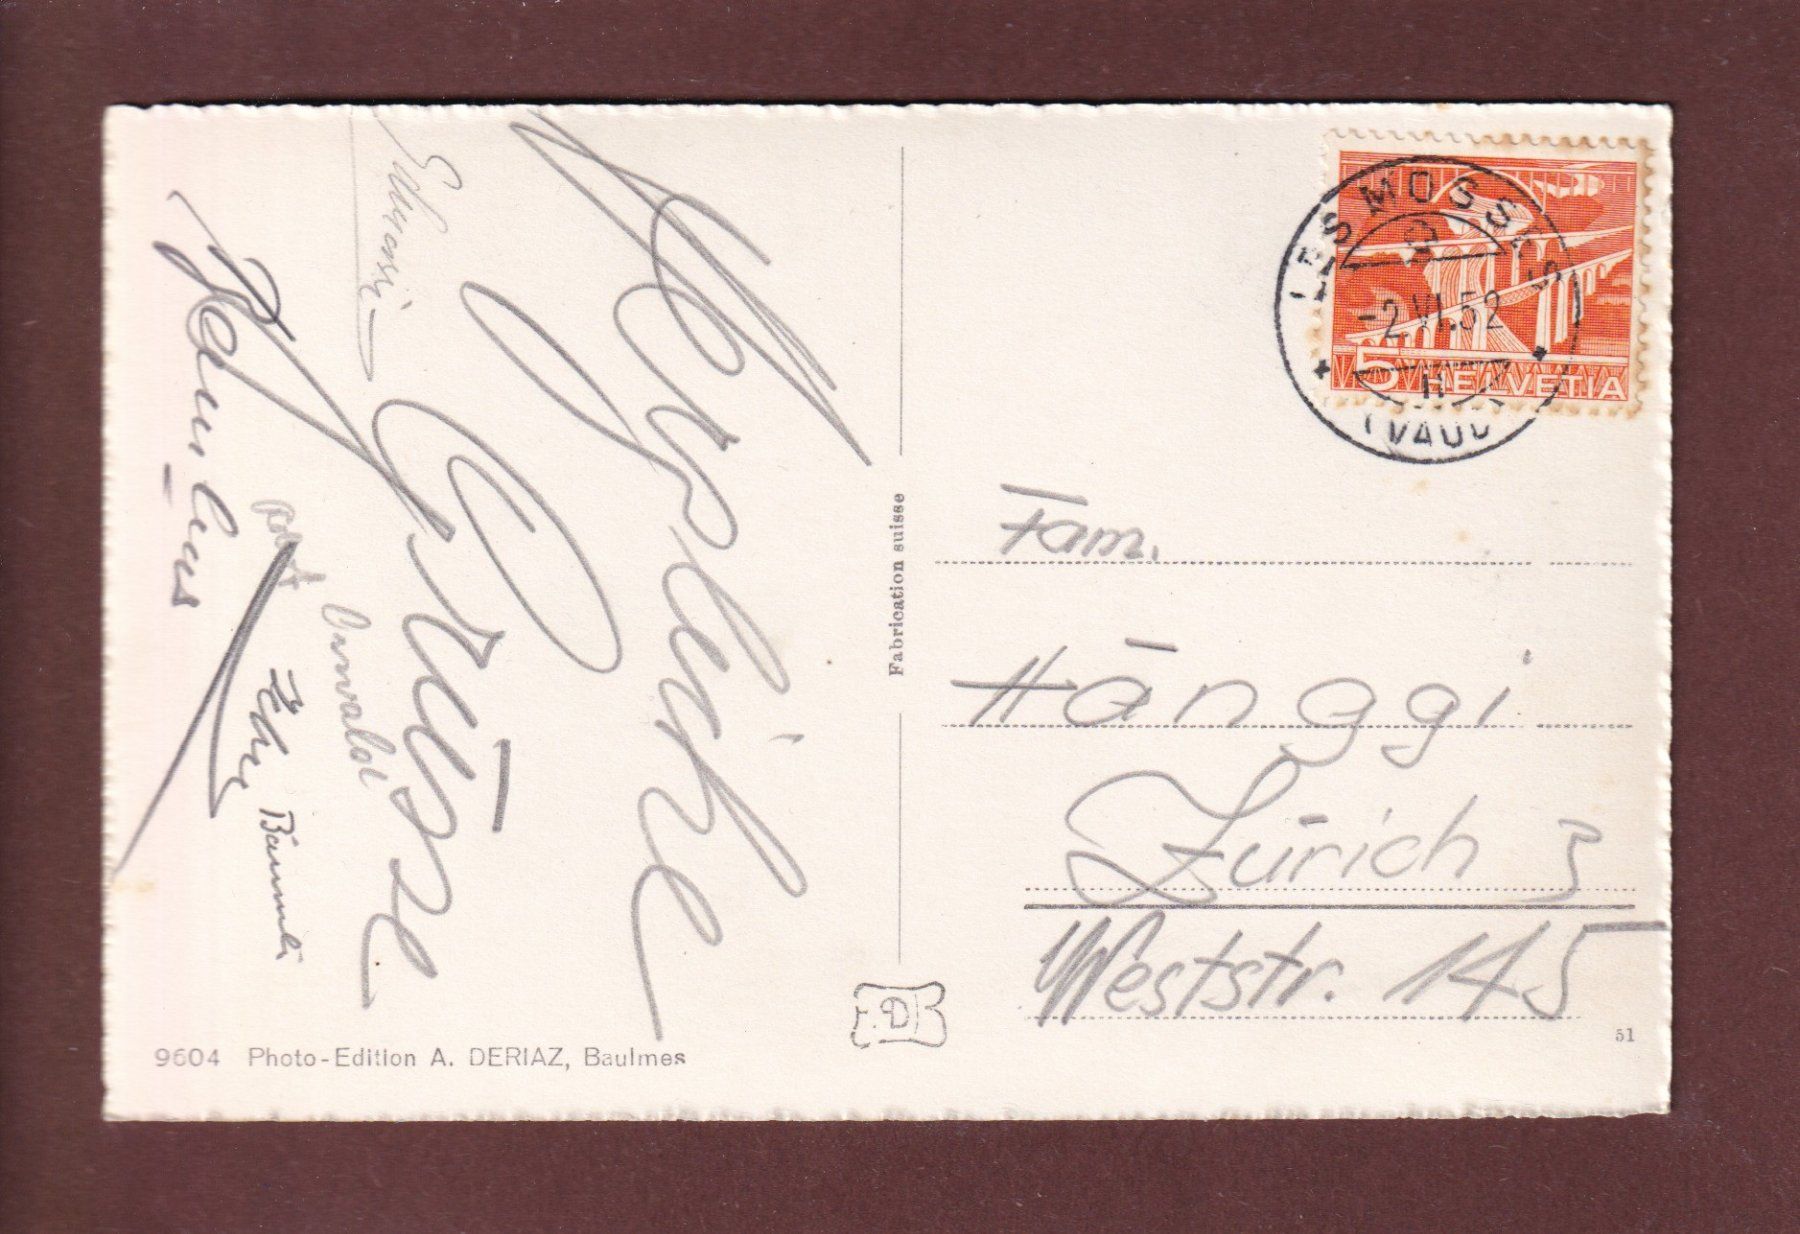 Herzliche
Grüsse
Fam.
Hänggi
Zürich 3
Weststr. 145
LES MOSSES
-2.VI.52
(VAUD)
5 HELVETIA
Fabrication suisse
9604 Photo-Edition A. DERIAZ, Baulmes
51